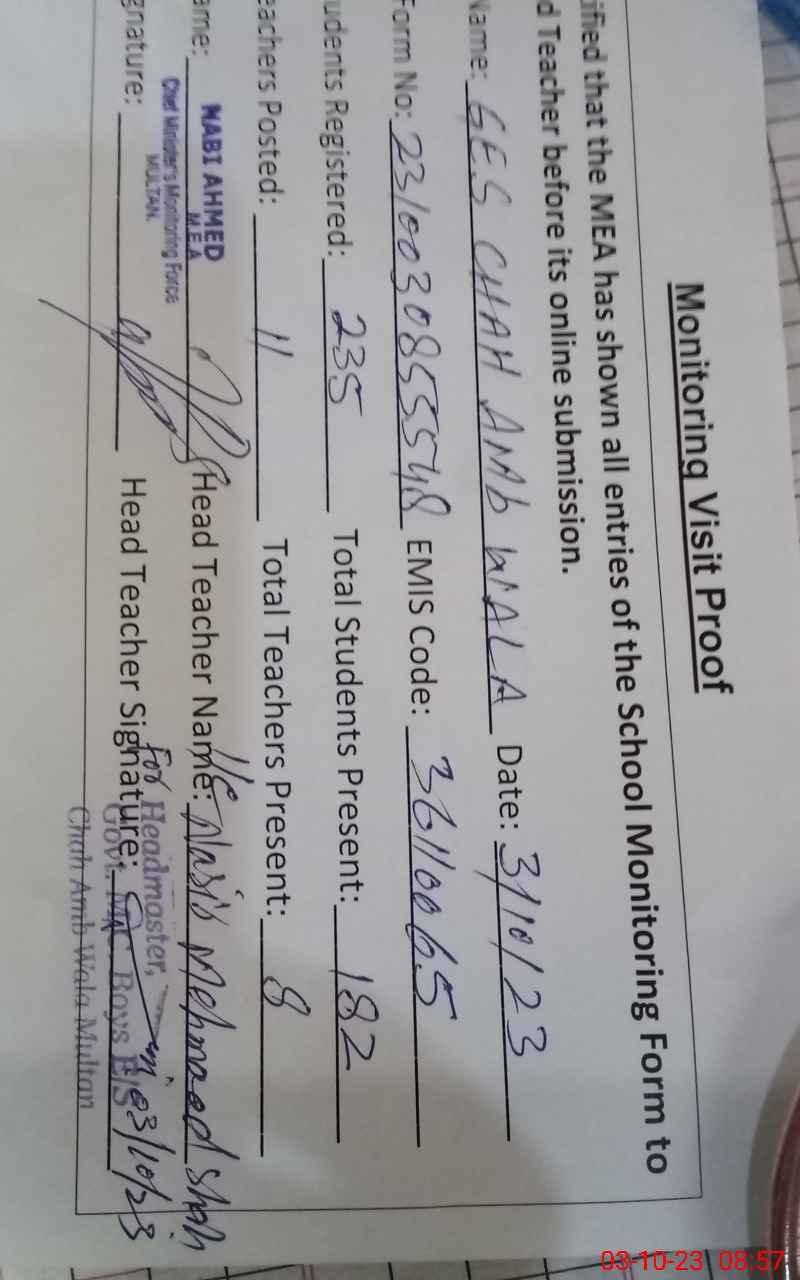 Monitoring Visit Proof
ified that the MEA has shown all entries of the School Monitoring Form to
d Teacher before its online submission.
Name: GES CHAH AMb WALA Date: 3/10/23
Form No: 2310030855548 EMIS Code: 36110065
udents Registered: 235 Total Students Present: 182
eachers Posted: 11 Total Teachers Present: 8
ame: NABI AHMED Head Teacher Name: Nasir Mehmood Shah
M E A
Chief Minister's Monitoring Force
MULTAN.
gnature: Head Teacher Signature: 03/10/23
for Headmaster,
Govt. M.C. Boys E/S
Chah Amb Wala Multan
03-10-23 08:57